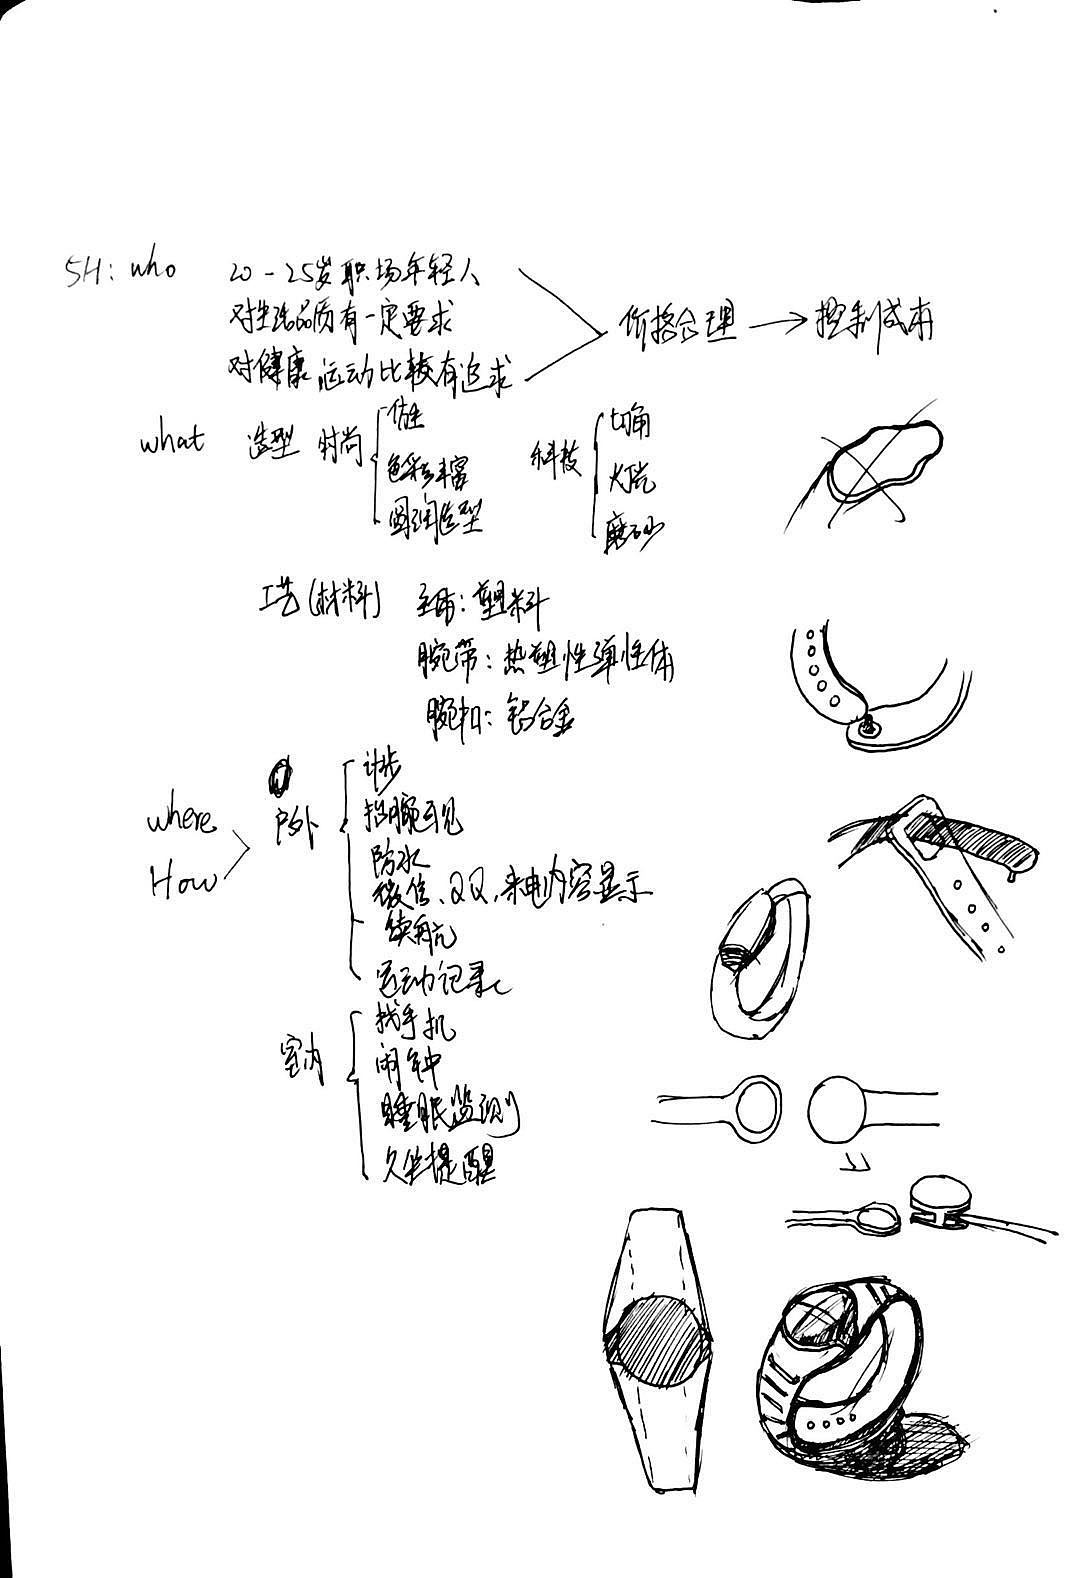 5H: who 20-25岁职场年轻人
对生活品质有一定要求
对健康运动比较有追求
价格合理 → 控制成本
what 造型 时尚
仿生
色彩丰富
圆润造型
科技
切角
灯光
磨砂
工艺(材料) 主体: 塑料
腕带: 热塑性弹性体
腕扣: 铝合金
where
How
户外
计步
抬腕可见
防水
微信、QQ、来电内容显示
续航
运动记录
室内
找手机
闹钟
睡眠监测
久坐提醒